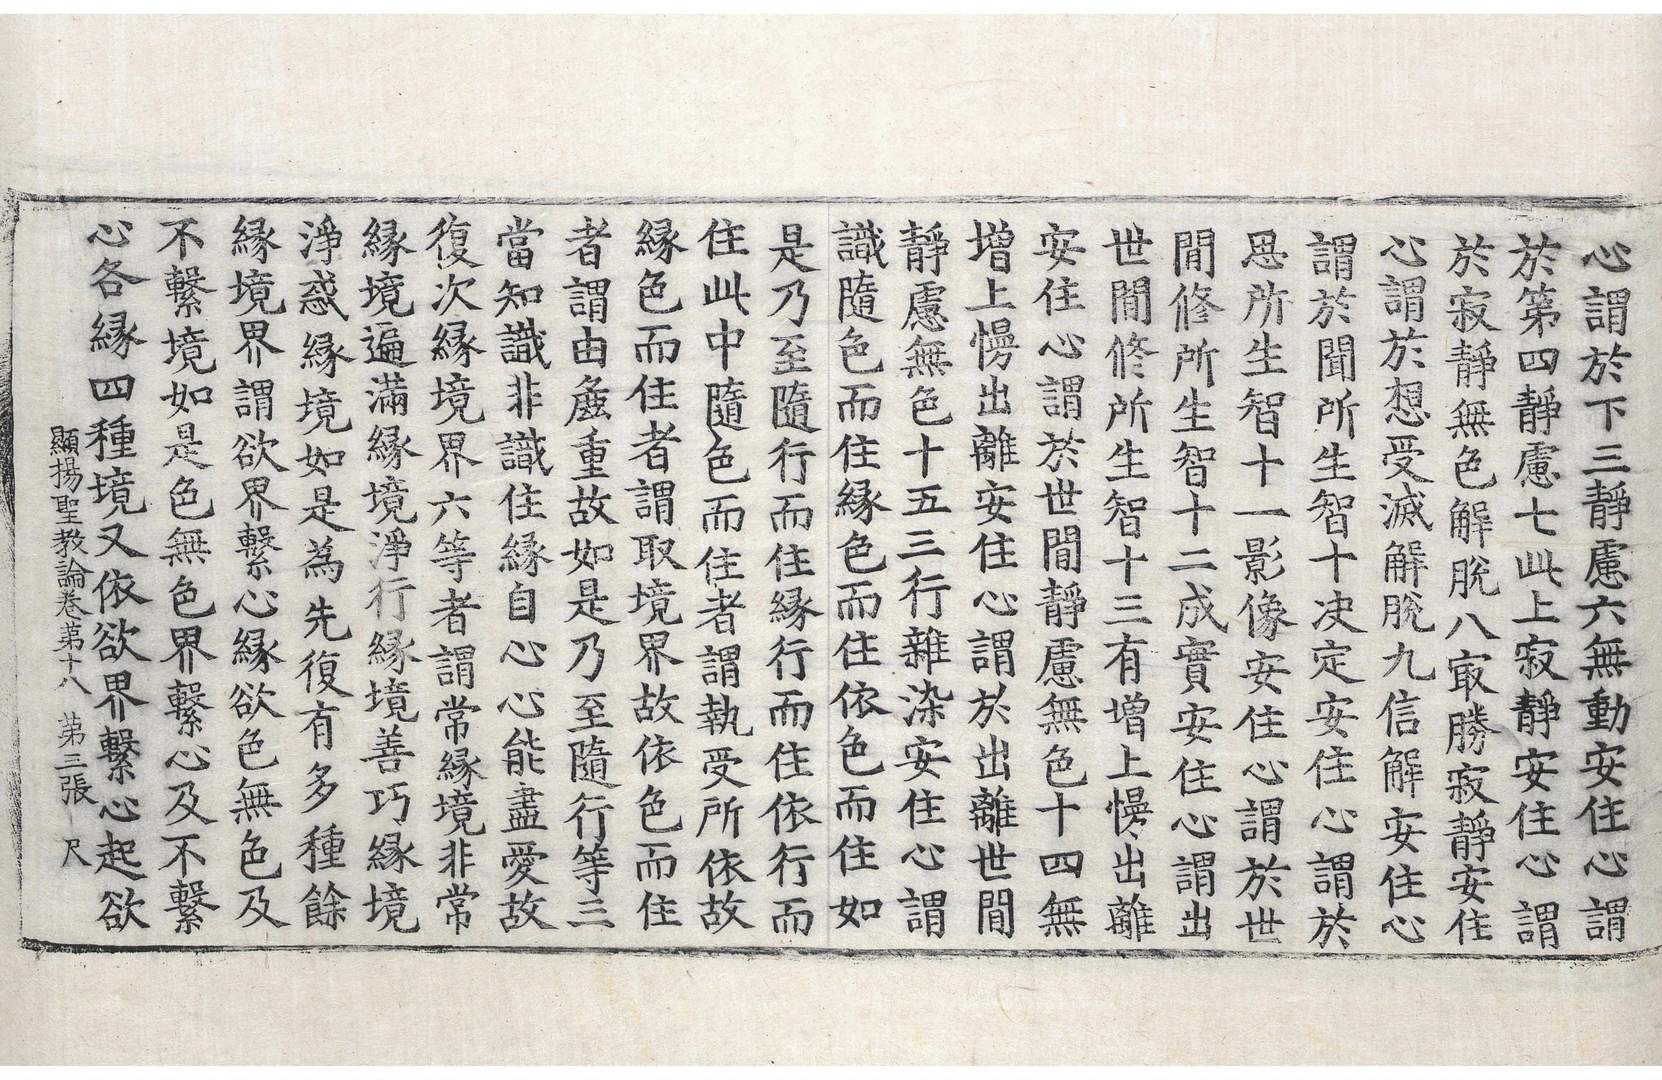 心謂於下三靜慮六無動安住心謂
於第四靜慮七此上寂靜安住心謂
於寂靜無色解脫八寂勝寂靜安住
心謂於想受滅解脫九信解安住心
謂於聞所生智十决定安住心謂於
思所生智十一影像安住心謂於世
閒修所生智十二成實安住心謂出
世閒修所生智十三有增上慢出離
安住心謂於世閒靜慮無色十四無
增上慢出離安住心謂於出離世閒
靜慮無色十五三行雜染安住心謂
識隨色而住緣色而住依色而住如
是乃至隨行而住緣行而住依行而
住此中隨色而住者謂執受所依故
緣色而住者謂取境界故依色而住
者謂由麁重故如是乃至隨行等三
當知識非識住緣自心心能盡愛故
復次緣境界六等者謂常緣境非常
緣境遍滿緣境淨行緣境善巧緣境
淨惑緣境如是為先復有多種餘
緣境界謂欲界繫心緣欲色無色及
不繫境如是色無色界繫心及不繫
心各緣四種境又依欲界繫心起欲
顯揚聖教論卷第十八 第三張 尺